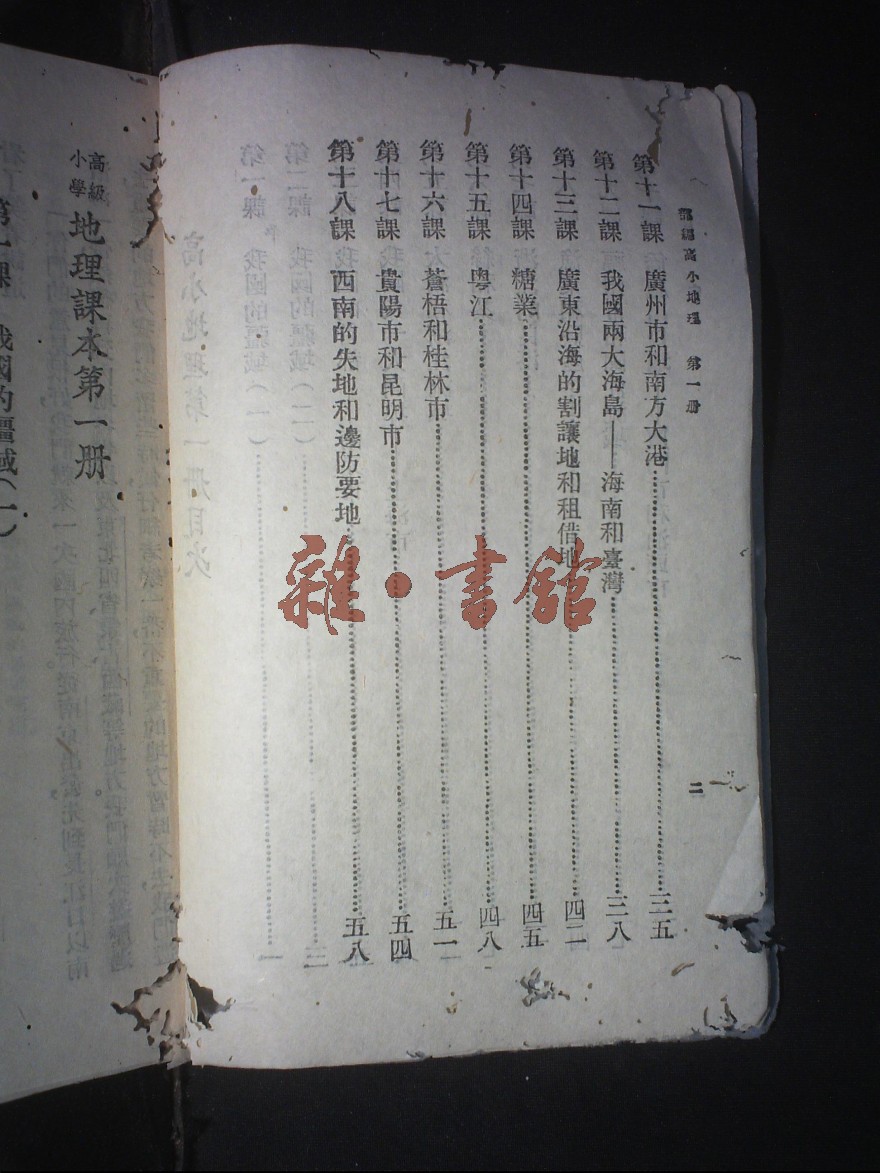 部編高小地理　第一册
二
第十一課　廣州市和南方大港……三五
第十二課　我國兩大海島——海南和臺灣……三八
第十三課　廣東沿海的割讓地和租借地……四二
第十四課　糖業……四五
第十五課　粵江……四八
第十六課　蒼梧和桂林市……五一
第十七課　貴陽市和昆明市……五四
第十八課　西南的失地和邊防要地……五八
高級小學　地理課本第一册
第一課　我國的疆域（一）
雜·書館